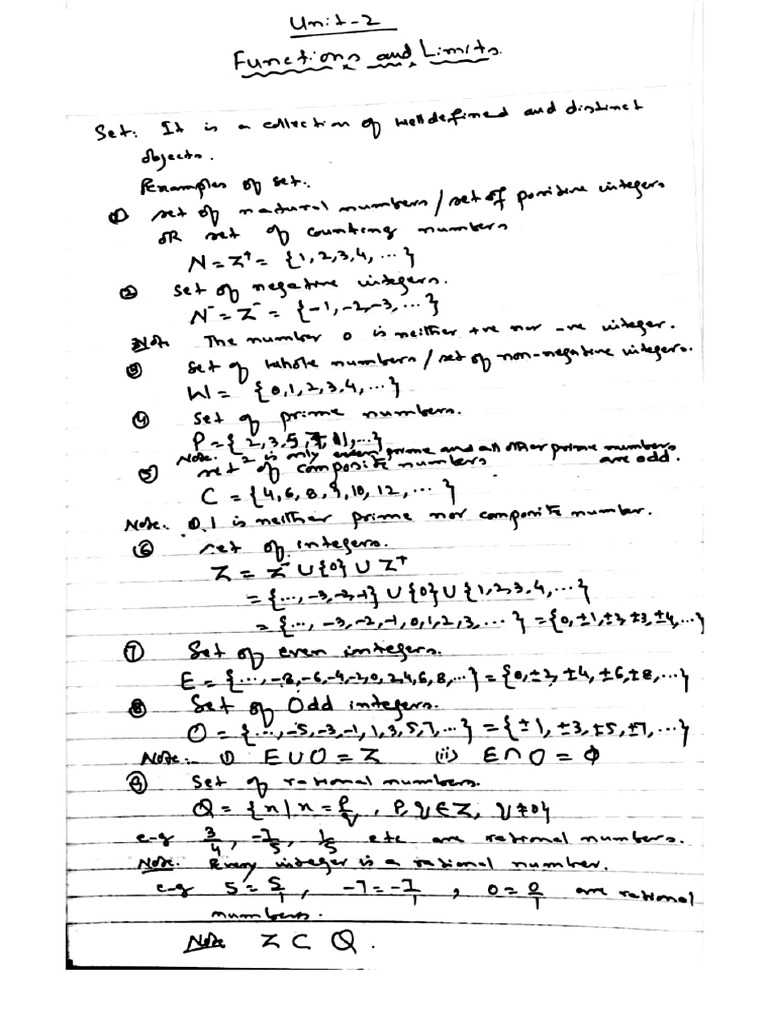 Unit-2
Functions and Limits.
Set: It is a collection of well defined and distinct
objects.
Examples of set:
① set of natural numbers / set of positive integers
OR set of counting numbers
N = Z⁺ = {1, 2, 3, 4, ...}
② Set of negative integers.
N⁻ = Z⁻ = {-1, -2, -3, ...}
Note. The number 0 is neither +ve nor -ve integer.
③ Set of whole numbers / set of non-negative integers.
W = {0, 1, 2, 3, 4, ...}
④ Set of prime numbers.
P = {2, 3, 5, 7, 11, ...}
Note. 2 is only even prime and all other prime numbers
are odd.
⑤ set of composite numbers
C = {4, 6, 8, 9, 10, 12, ...}
Note. 0, 1 is neither prime nor composite number.
⑥ set of integers.
Z = Z⁻ ∪ {0} ∪ Z⁺
= {..., -3, -2, -1} ∪ {0} ∪ {1, 2, 3, 4, ...}
= {..., -3, -2, -1, 0, 1, 2, 3, ...} = {0, ±1, ±2, ±3, ±4, ...}
⑦ Set of even integers.
E = {..., -8, -6, -4, -2, 0, 2, 4, 6, 8, ...} = {0, ±2, ±4, ±6, ±8, ...}
⑧ Set of Odd integers.
O = {..., -5, -3, -1, 1, 3, 5, 7, ...} = {±1, ±3, ±5, ±7, ...}
Note:- (i) E ∪ O = Z (ii) E ∩ O = ϕ
⑨ Set of rational numbers.
Q = {x | x = p/q, p, q ∈ Z, q ≠ 0}
e-g 3/4, -7/5, 1/5 etc are rational numbers.
Note. Every integer is a rational number.
e-g 5 = 5/1, -7 = -7/1, 0 = 0/1 are rational
numbers.
Note Z ⊂ Q.